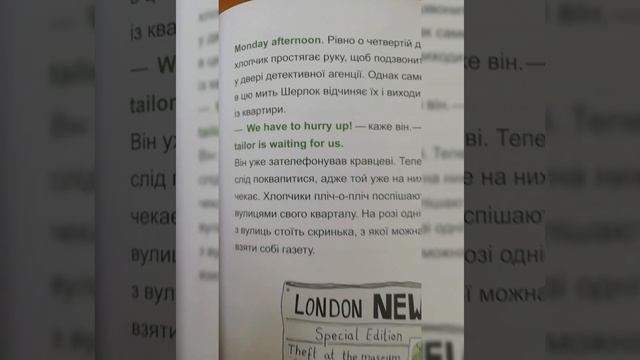 Monday afternoon. Рівно о четвертій
хлопчик простягає руку, щоб
у двері детективної агенції. Однак
в цю мить Шерлок відчиняє їх і
із квартири.
— We have to hurry up! — каже він.—
tailor is waiting for us.
Він уже зателефонував кравцеві.
слід поквапитися, адже той уже на
чекає. Хлопчики пліч-о-пліч
вулицями свого кварталу. На розі
з вулиць стоїть скринька, з якої
взяти собі газету.
LONDON
Special Edition
Theft at the museum